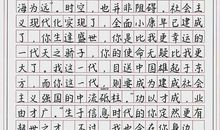 海为远”，时空，也并非阻碍，社会主
义现代化实现了，全面小康早已建成
了，你生逢盛世，你是比我更幸运的
一代天之骄子，你的使命无疑比我更
大了，我这一代，目送中国雄起于东
方，而你这一代，则要成为建成社会
主义强国的中流砥柱，功以才成，业
由才广，生于信息时代的你仍然要有